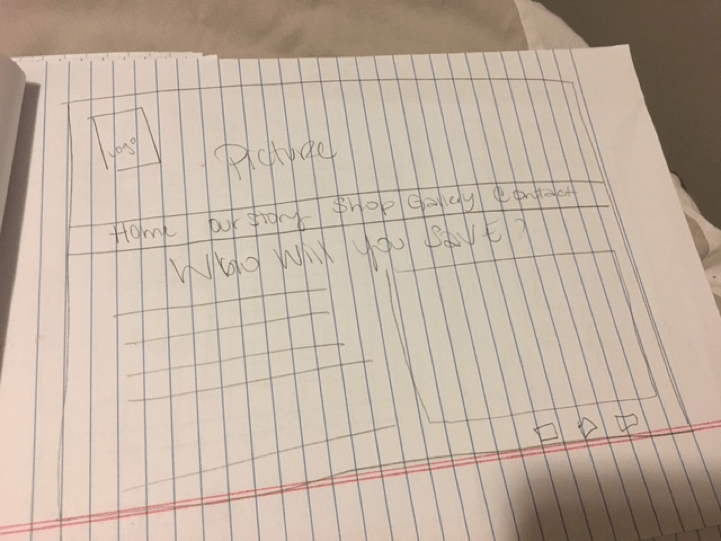 Logo
Picture
Home Our story Shop Gallery Contact
Who Will you SAVE?